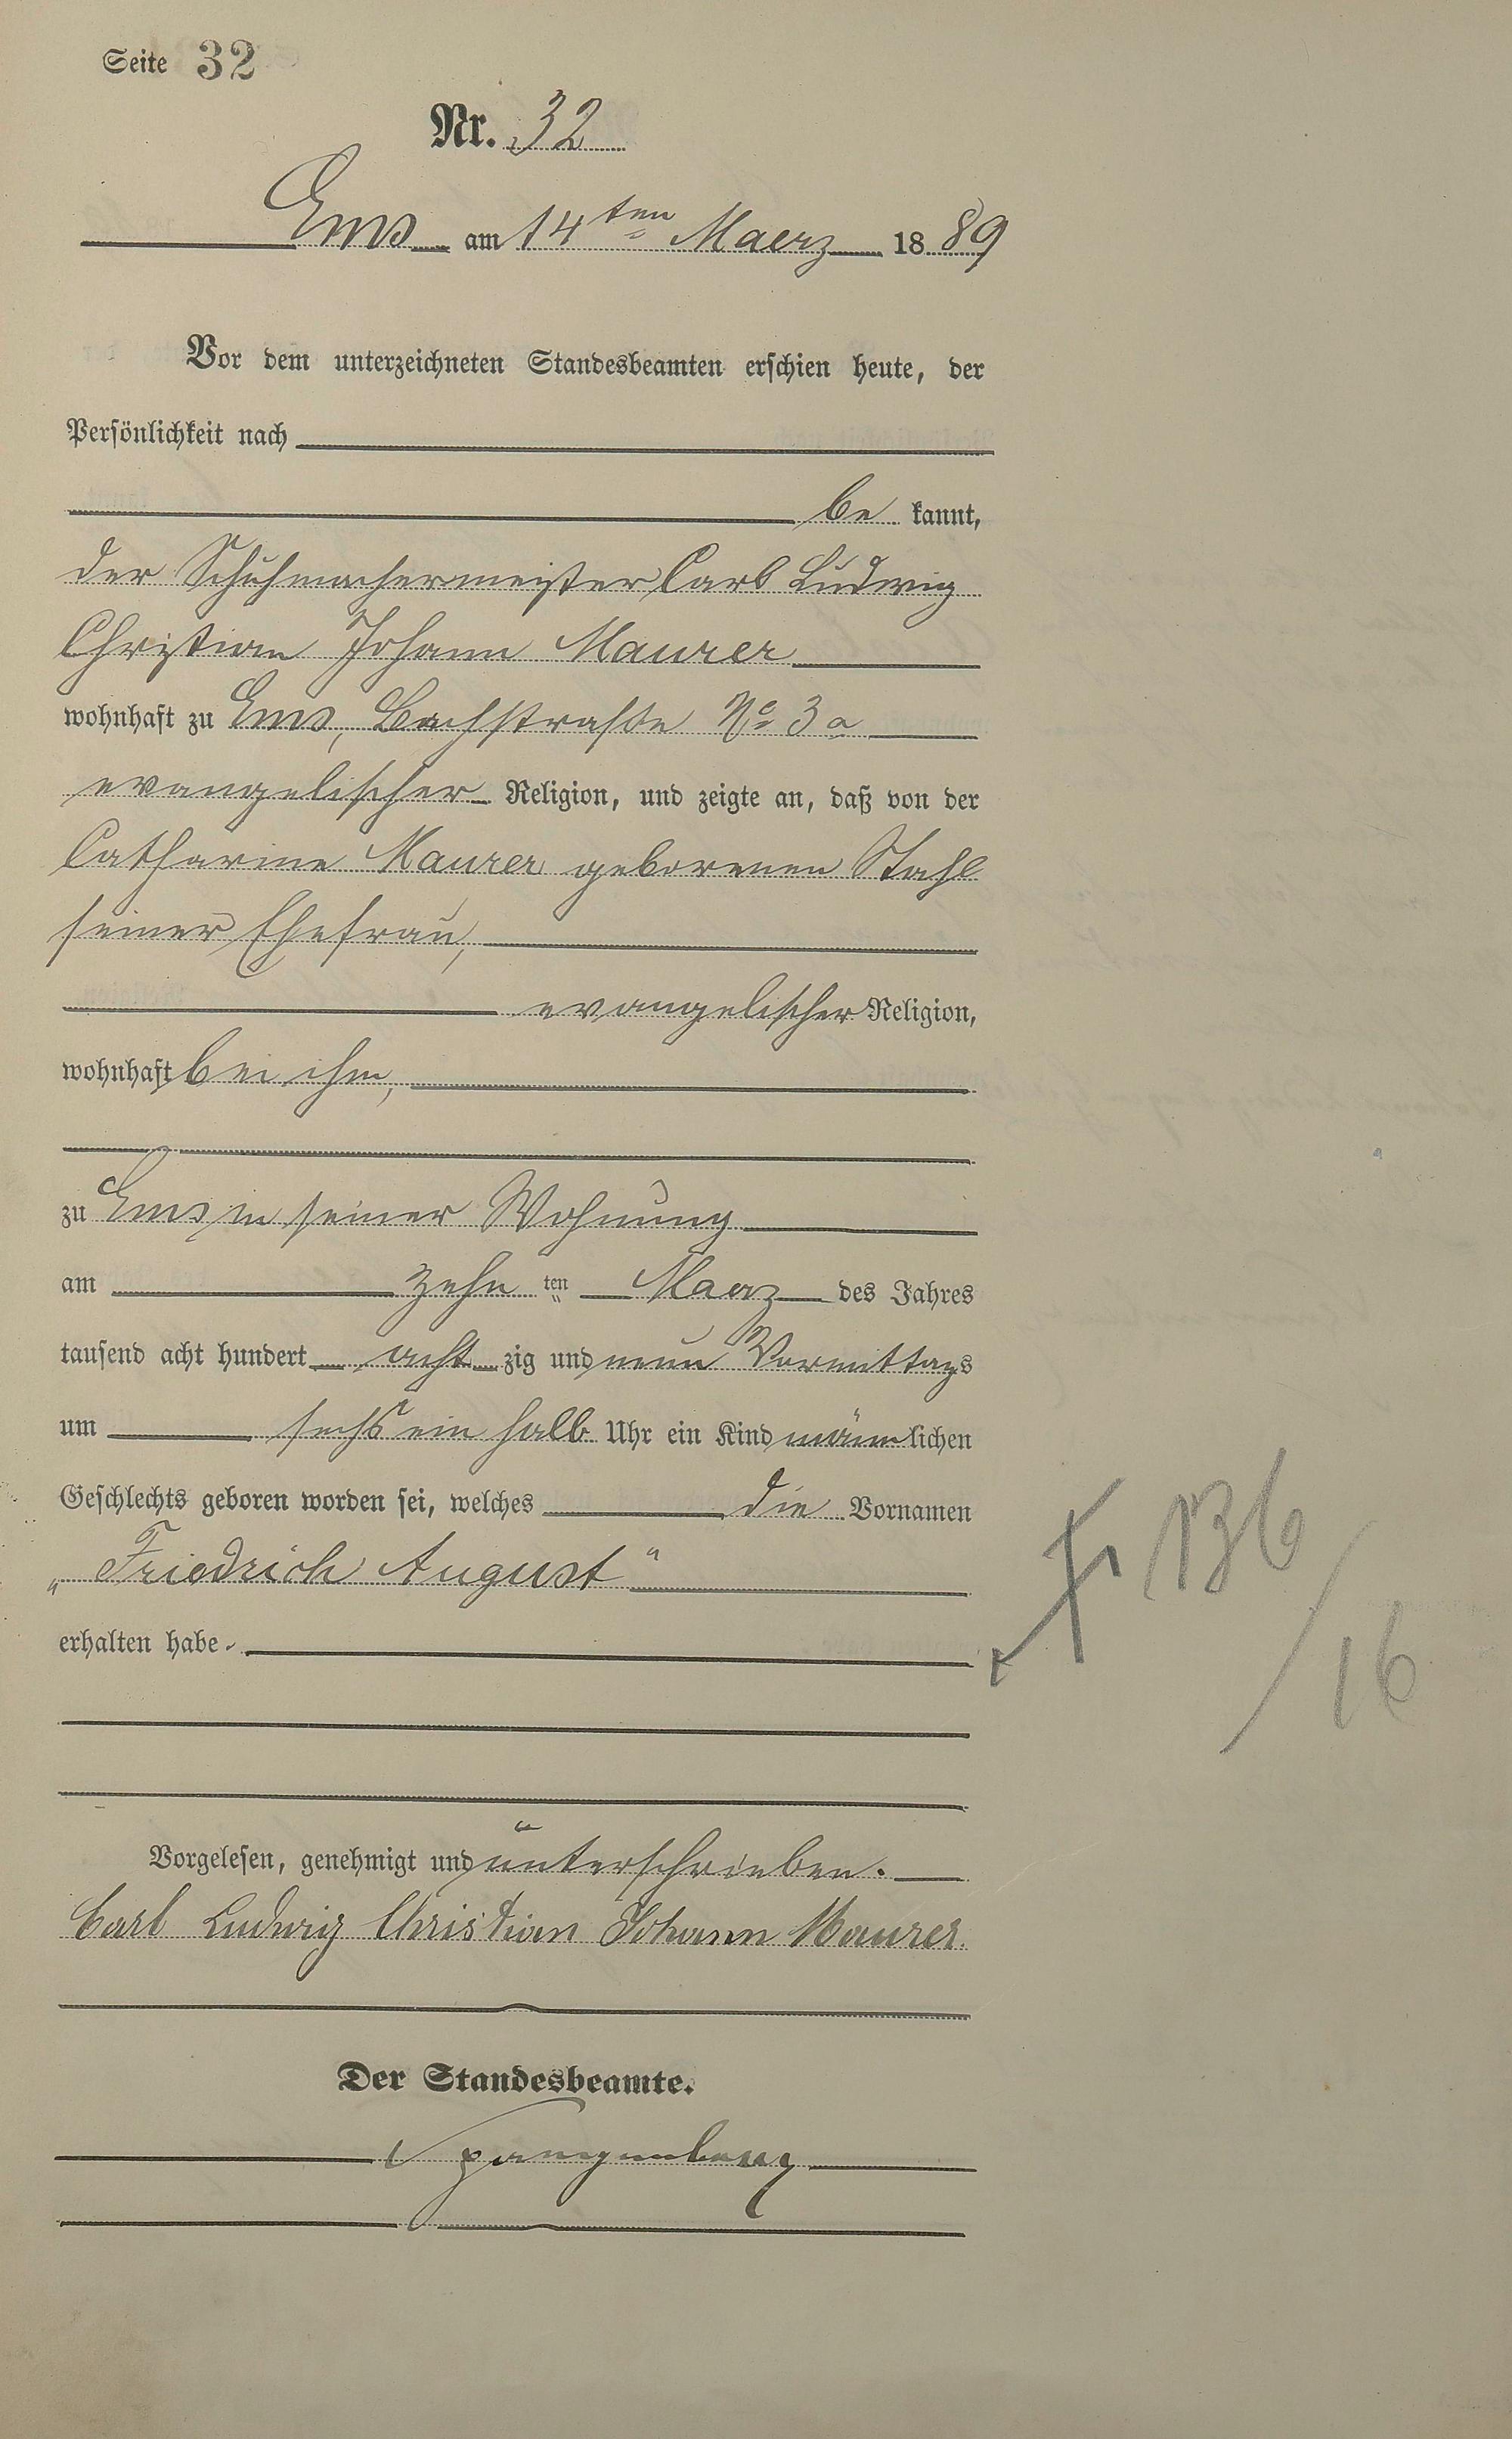 Seite 32
Nr. 32
Ems am 14ten Maerz 1889
Vor dem unterzeichneten Standesbeamten erschien heute, der
Persönlichkeit nach
be kannt,
der Schuhmachermeister Carl Ludwig
Christian Johann Maurer
wohnhaft zu Ems, Bachstraße No 3a
evangelischer Religion, und zeigte an, daß von der
Catharine Maurer geborenen Stahl
seiner Ehefrau,
evangelischer Religion,
wohnhaft bei ihm,
zu Ems in seiner Wohnung
am zehn ten Maerz des Jahres
tausend acht hundert acht zig und neun Vormittags
um sechs ein halb Uhr ein Kind männlichen
Geschlechts geboren worden sei, welches die Vornamen
„Friedrich August“
erhalten habe.
136
/
16
Vorgelesen, genehmigt und unterschrieben.
Carl Ludwig Christian Johann Maurer.
Der Standesbeamte.
Spangenberg